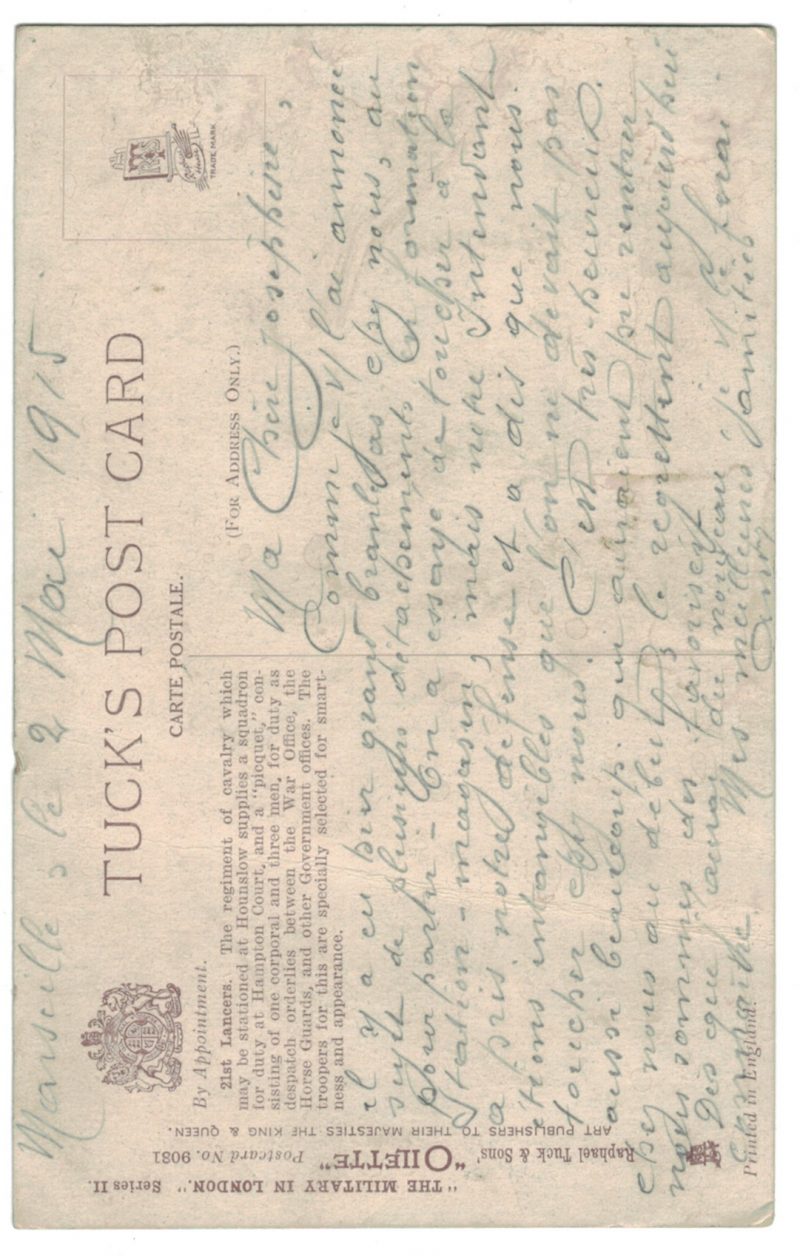 Marseille, le 2 Mai 1915
TUCK'S POST CARD
CARTE POSTALE.
(FOR ADDRESS ONLY.)
TRADE MARK
By Appointment.
21st Lancers. The regiment of cavalry which
may be stationed at Hounslow supplies a squadron
for duty at Hampton Court, and a "picquet," con-
sisting of one corporal and three men, for duty as
despatch orderlies between the War Office, the
Horse Guards, and other Government offices. The
troopers for this are specially selected for smart-
ness and appearance.
Ma Chère Josephine,
Comme je l'ai annoncé
il y a eu hier grand branle bas chez nous, au
sujet de plusieurs détachements et formation
pour partir - On a essayé de toucher à la
Station-magasin, mais notre Intendant
a pris notre défense et a dit que nous
étions intangibles que l'on ne devait pas
toucher chez nous. C'est très heureux.
aussi beaucoup qui auraient pu rentrer
chez nous au début, le regrettent aujourd'hui
nous sommes des favorisés
Dès que j'aurai du nouveau, je te ferai
connaître. Mes meilleures amitiés
"THE MILITARY IN LONDON." Series II.
Raphael Tuck & Sons' "OILETTE" Postcard No. 9081
ART PUBLISHERS TO THEIR MAJESTIES THE KING & QUEEN.
Printed in England.